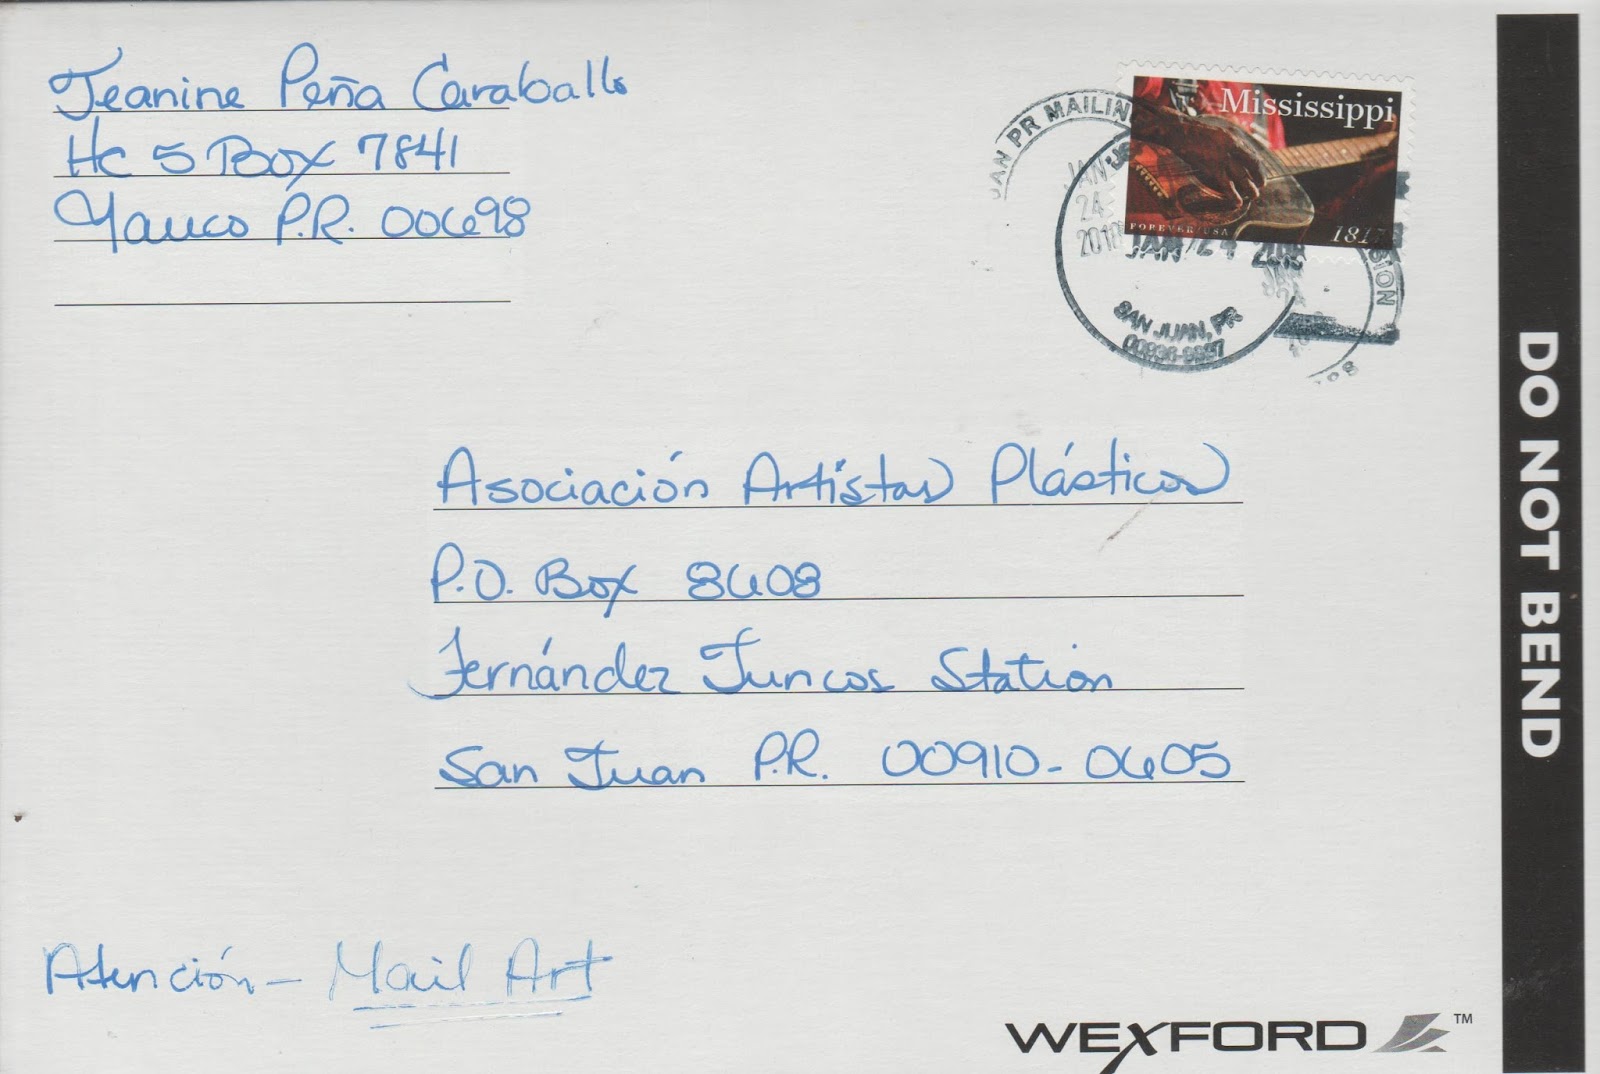 Jeanine Peña Caraballo
HC 5 Box 7841
Yauco P.R. 00698
Mississippi
FOREVER/USA
1817
JAN 24 2018
SAN JUAN, PR
Asociación Artístas Plásticos
P.O. Box 8608
Fernández Juncos Station
San Juan P.R. 00910-0605
Atención - Mail Art
WEXFORD™
DO NOT BEND